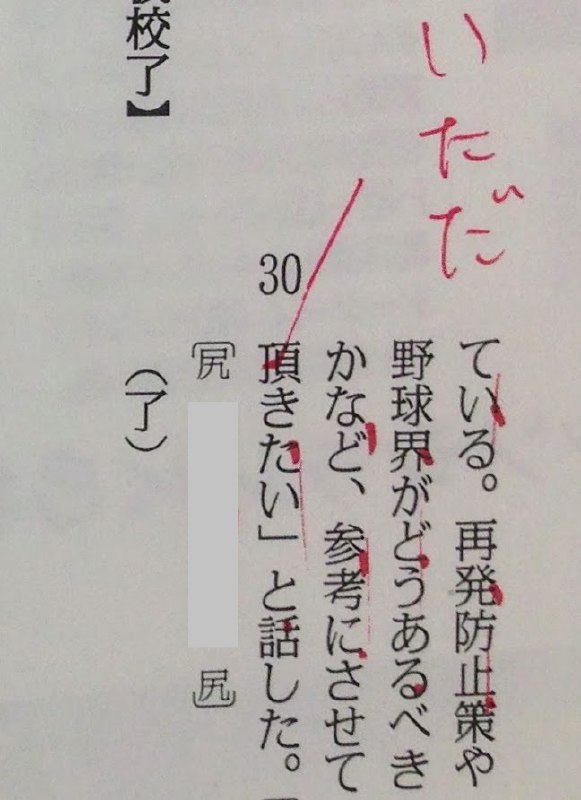 いただ
ている。再発防止策や
野球界がどうあるべき
かなど、参考にさせて
30
頂きたい」と話した。
〔尻 尻〕
校了】
（了）